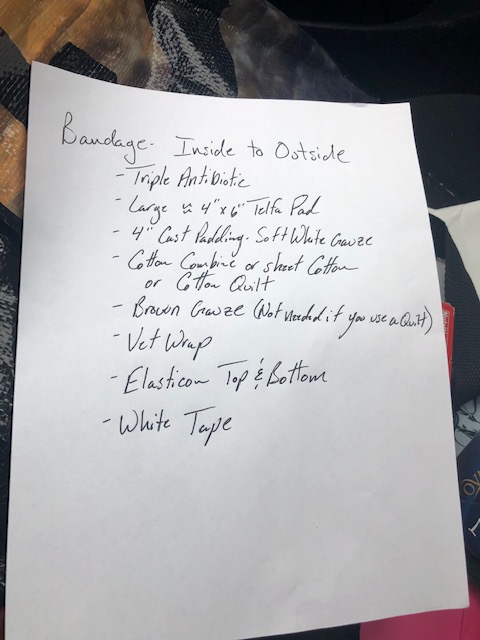 Bandage - Inside to Outside
- Triple Antibiotic
- Large ≈ 4" x 6" Telfa Pad
- 4" Cast Padding - Soft White Gauze
- Cotton Combine or sheet Cotton
or Cotton Quilt
- Brown Gauze (Not needed if you use a Quilt)
- Vet Wrap
- Elasticon Top & Bottom
- White Tape